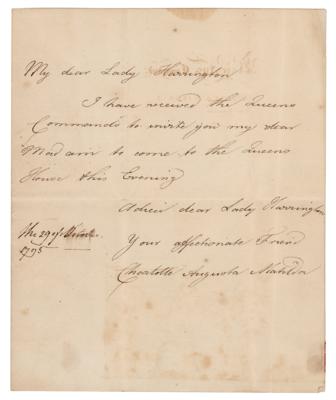 My dear Lady Harrington
I have received the Queens
Commands to invite you my dear
Madam to come to the Queens
House this Evening
Adieu dear Lady Harrington
the 29 of
1795
Your affectionate Friend
Charlotte Augusta Matilda